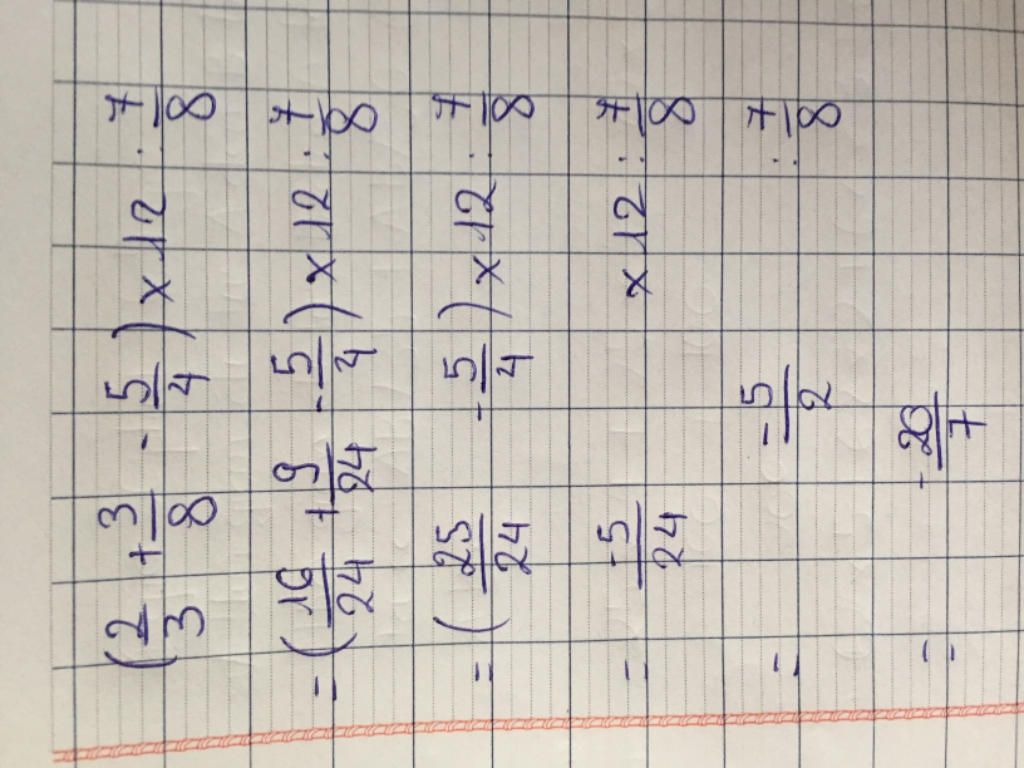 (2/3 + 3/8 - 5/4) x 12 : 7/8
= (16/24 + 9/24 - 5/4) x 12 : 7/8
= (25/24 - 5/4) x 12 : 7/8
= -5/24 x 12 : 7/8
= -5/2 : 7/8
= -20/7